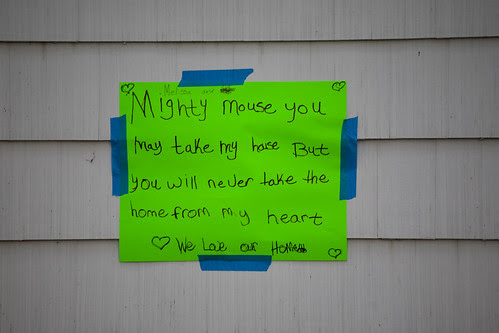 Melissa and
Mighty mouse you
may take my hose But
you will never take the
home from my heart
We Love our Home